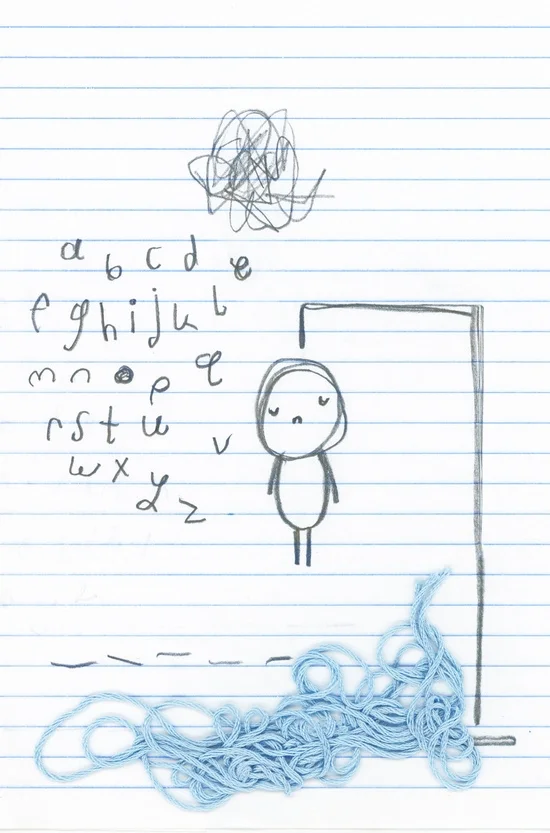 a b c d e
f g h i j k l
m n o p q
r s t u v
w x y z